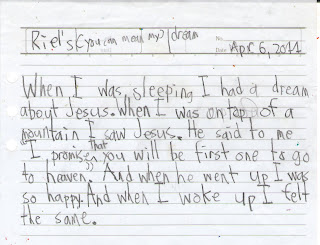 Riel's (you can mean my) dream
No.
Date Apr. 6, 2011
When I was sleeping I had a dream
about Jesus. When I was on top of a
mountain I saw Jesus. He said to me
"I promise That you will be first one to go
to heaven." And when he went up I was
so happy. And when I woke up I felt
the same.